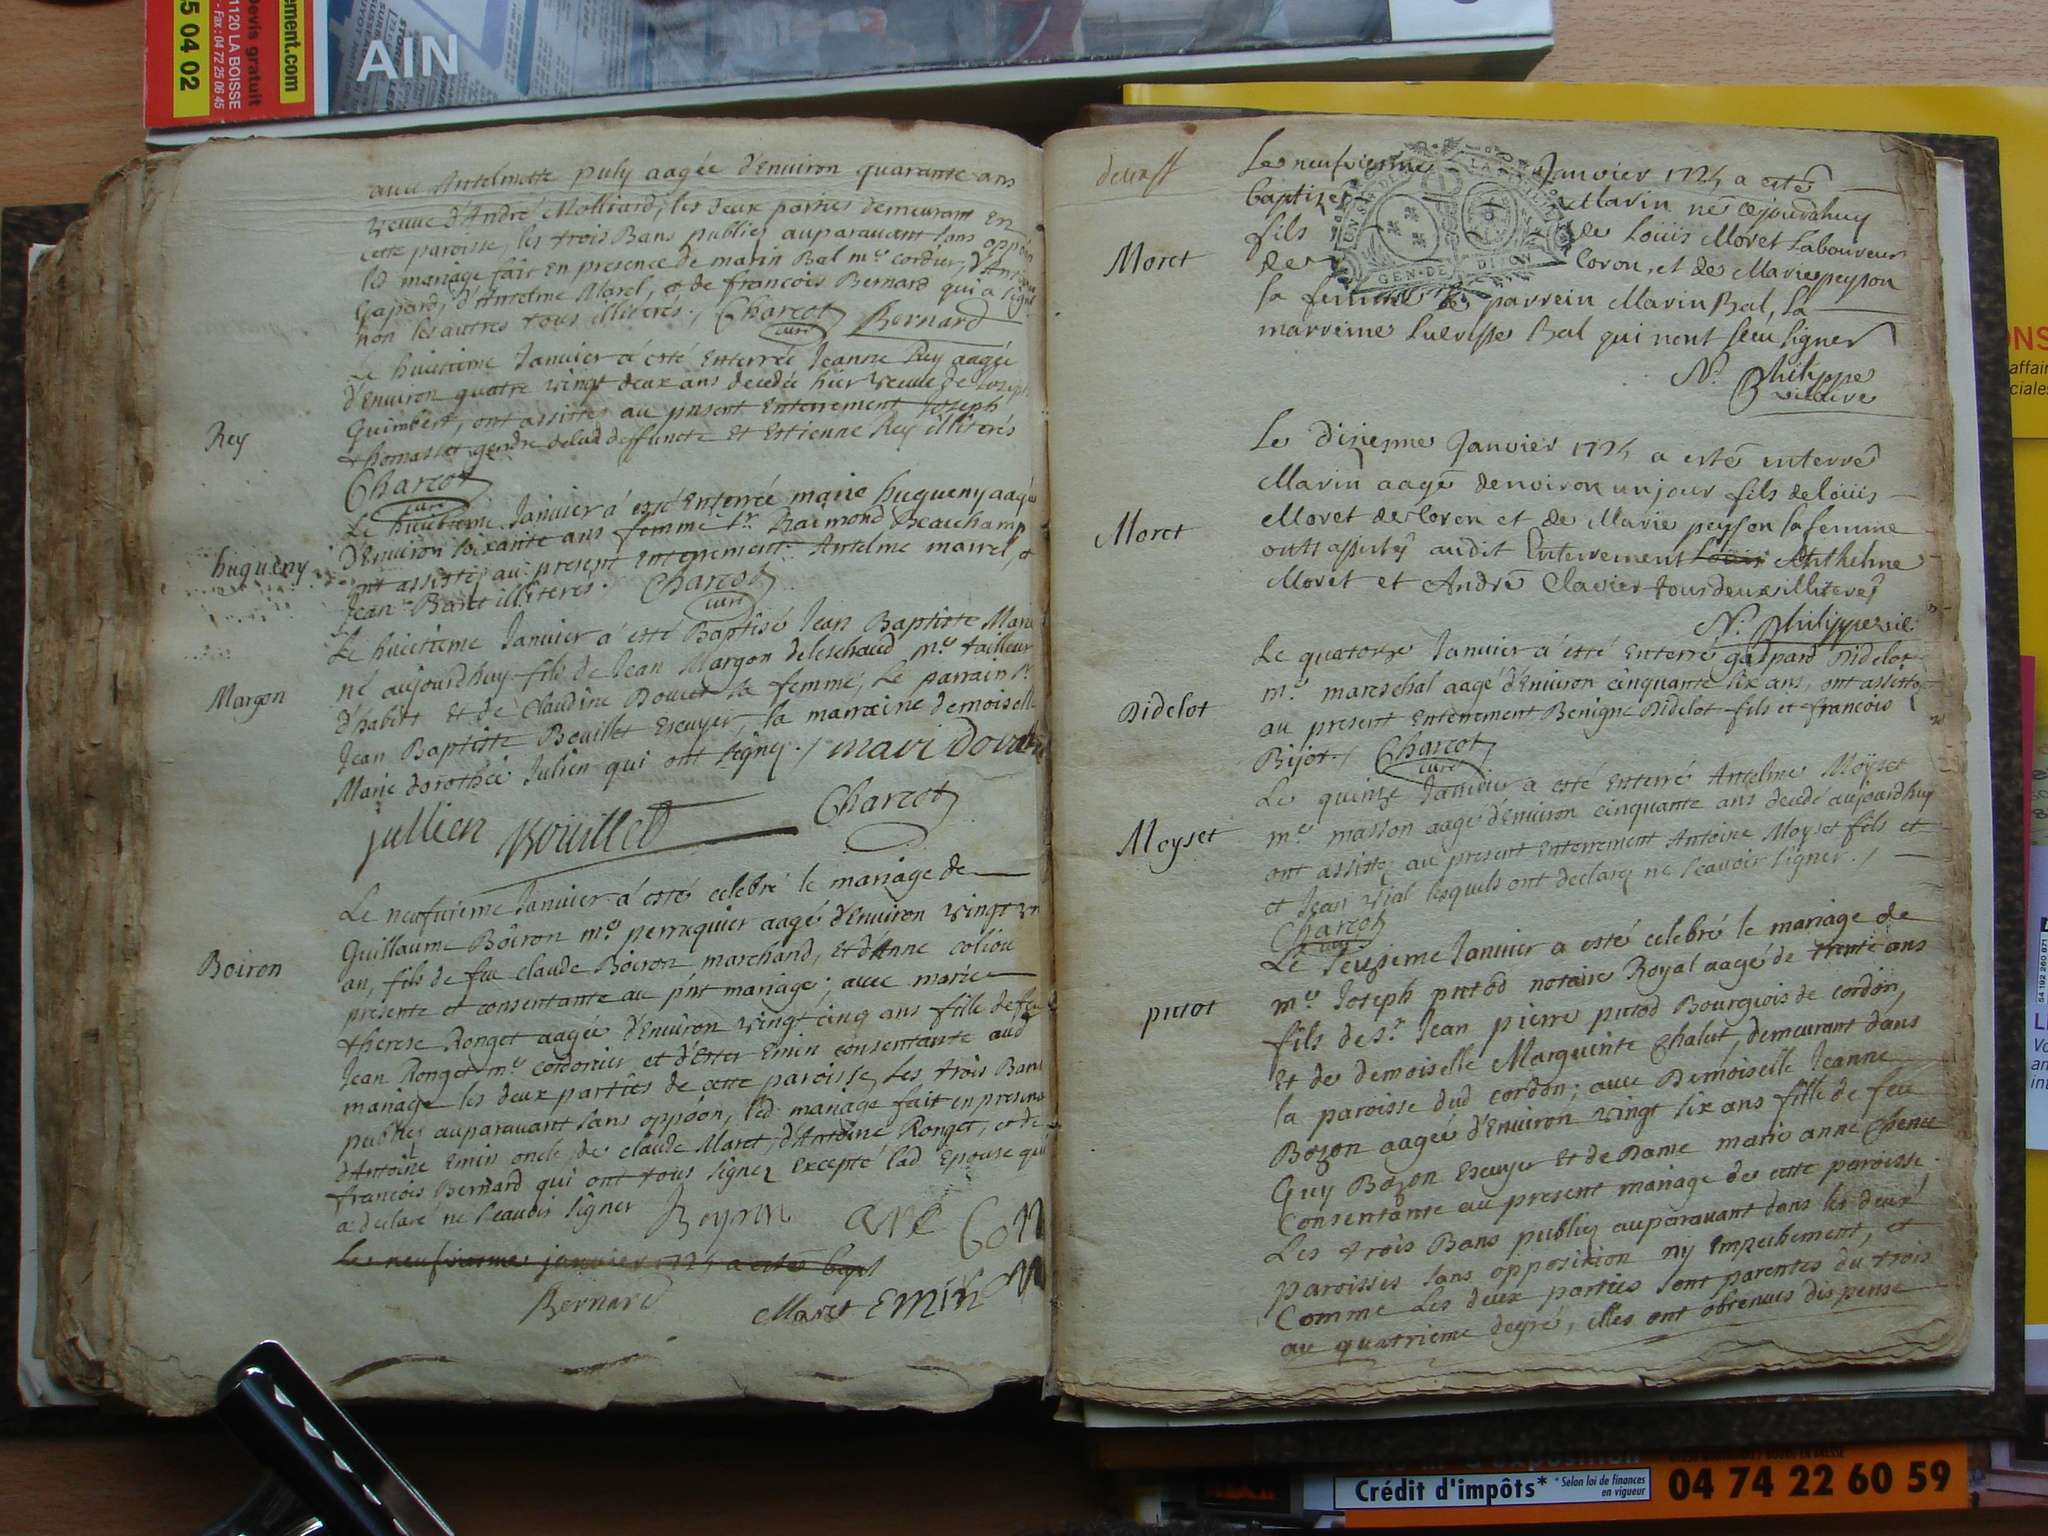 ement.com
Devis gratuit
1120 LA BOISSE
- Fax : 04 72 25 06 45
5 04 02
AIN
avec Antelmette puly aagée d'Environ quarante ans
veuve d'André Molliard, les deux parties demeurant En
cette paroisse, les trois Bans publiez auparavant sans oppôon
led mariage fait En presence de marin Bal m.e cordier,
Gapard, d'Antelme Marel, et de francois Bernard qui a signé
non les autres tous illiterés./ Charcot curé Bernard
Rey
Le huictieme Janvier a esté Enterrée Jeanne Rey aagée
d'Environ quatre vingt deux ans decedée hier veuve de Joseph
Guimbert, ont assistez au present Enterrement Joseph
thomasset gendre delad deffuncte Et Estienne Rey illiterés
Charcot curé
hugueny
Le huictieme Janvier a esté Enterrée marie hugueny aagée
d'Environ soixante ans femme Sr. Raemond Beauchamp
ont assistez au present enterrement Antelme marrel, et
Jean Baret illiterés. Charcot curé
Margon
Le huictieme Janvier a esté Baptisé Jean Baptiste Marie
né aujourdhuy fils de Jean Margon deleschaud m.e tailleur
d'habits Et de Claudine Doucet sa femme, Le parrain Sr.
Jean Baptiste Bouillet Escuyer, la marraine demoiselle
Marie dorothée Julien qui ont signez./ mari Dorot
jullien Bouillet Charcot
Boiron
Le neufvieme Janvier a esté celebré le mariage de
Guillaume Boiron m.e perruquier aagé d'Environ vingt un
an, fils de feu claude Boiron marchand, et d'Anne coliou
presente et consentante au pñt mariage; avec marie
therese Ronget aagée d'Environ vingt cinq ans fille de feu
Jean Ronget m.e cordonier et d'Ester Emin consentante aud
mariage les deux parties de cette paroisse, Les trois Bans
publiez auparavant sans oppôon, led. mariage fait en presence
d'Antoine Emin oncle, de claude Maret, d'Antoine Ronget, et de
francois Bernard qui ont tous signez Excepté lad Epouse qui
a declaré ne scavoir signer Boyron
Le neufvieme janvier 1724 a estés bapt
Bernard Maret Emin
Moret
Le neufvieme Janvier 1724 a esté
baptizé Marin né cejourdhuy
fils de Loüis Moret Laboureur
de loron, et de Marie peyson
sa femme Le parrein Marin Bal, La
marreine Bal qui nont sceu signer
N. Philippe vicaire
GEN·DE DIJON
Moret
Le dixieme Janvier 1724 a esté enterré
Marin aagé denviron un jour fils de loüis
Moret de loren et de Marie peyson sa femme
ont assistez audit Enterrement Louis Anthelme
Moret et André Clavier tous deux illiterez
N. Philippe vic.
Didelot
Le quatorze Janvier a esté Enterré gaspard Didelot
m.e mareschal aagé d'Environ cinquante six ans, ont assistez
au present Enterrement Benigne Didelot fils et francois
Bijot./ Charcot curé
Moyset
Le quinze Janvier a esté Enterré Antelme Moÿset
m.e masson aagé d'Environ cinquante ans decedé aujourdhuy
ont assistez au present Enterrement Antoine Moyset fils et
et Jean Vial lesquels ont declarez ne scavoir signer./
Charcot curé
putot
Le seizieme Janvier a esté celebré le mariage de
m.e Joseph putod notaire Royal aagé de trente ans
fils de Sr. Jean pierre putod Bourgeois de cordon,
Et de demoiselle Marguerite Chalut, demeurant dans
la paroisse dud cordon; avec Demoiselle Jeanne
Bozon aagée d'Environ vingt six ans fille de feu
Guy Bozon Escuyer Et de Dame marie anne Chene
Consentante au present mariage de cette paroisse.
Les trois Bans publiez auparavant dans les deux
paroisses sans opposition ny Empechement, et
Comme Les deux parties sont parentes du trois
au quatrieme degré, Elles ont obtenues dispense
ONS
affair
ciales
Crédit d'impôts* * Selon loi de finances
en vigueur
04 74 22 60 59